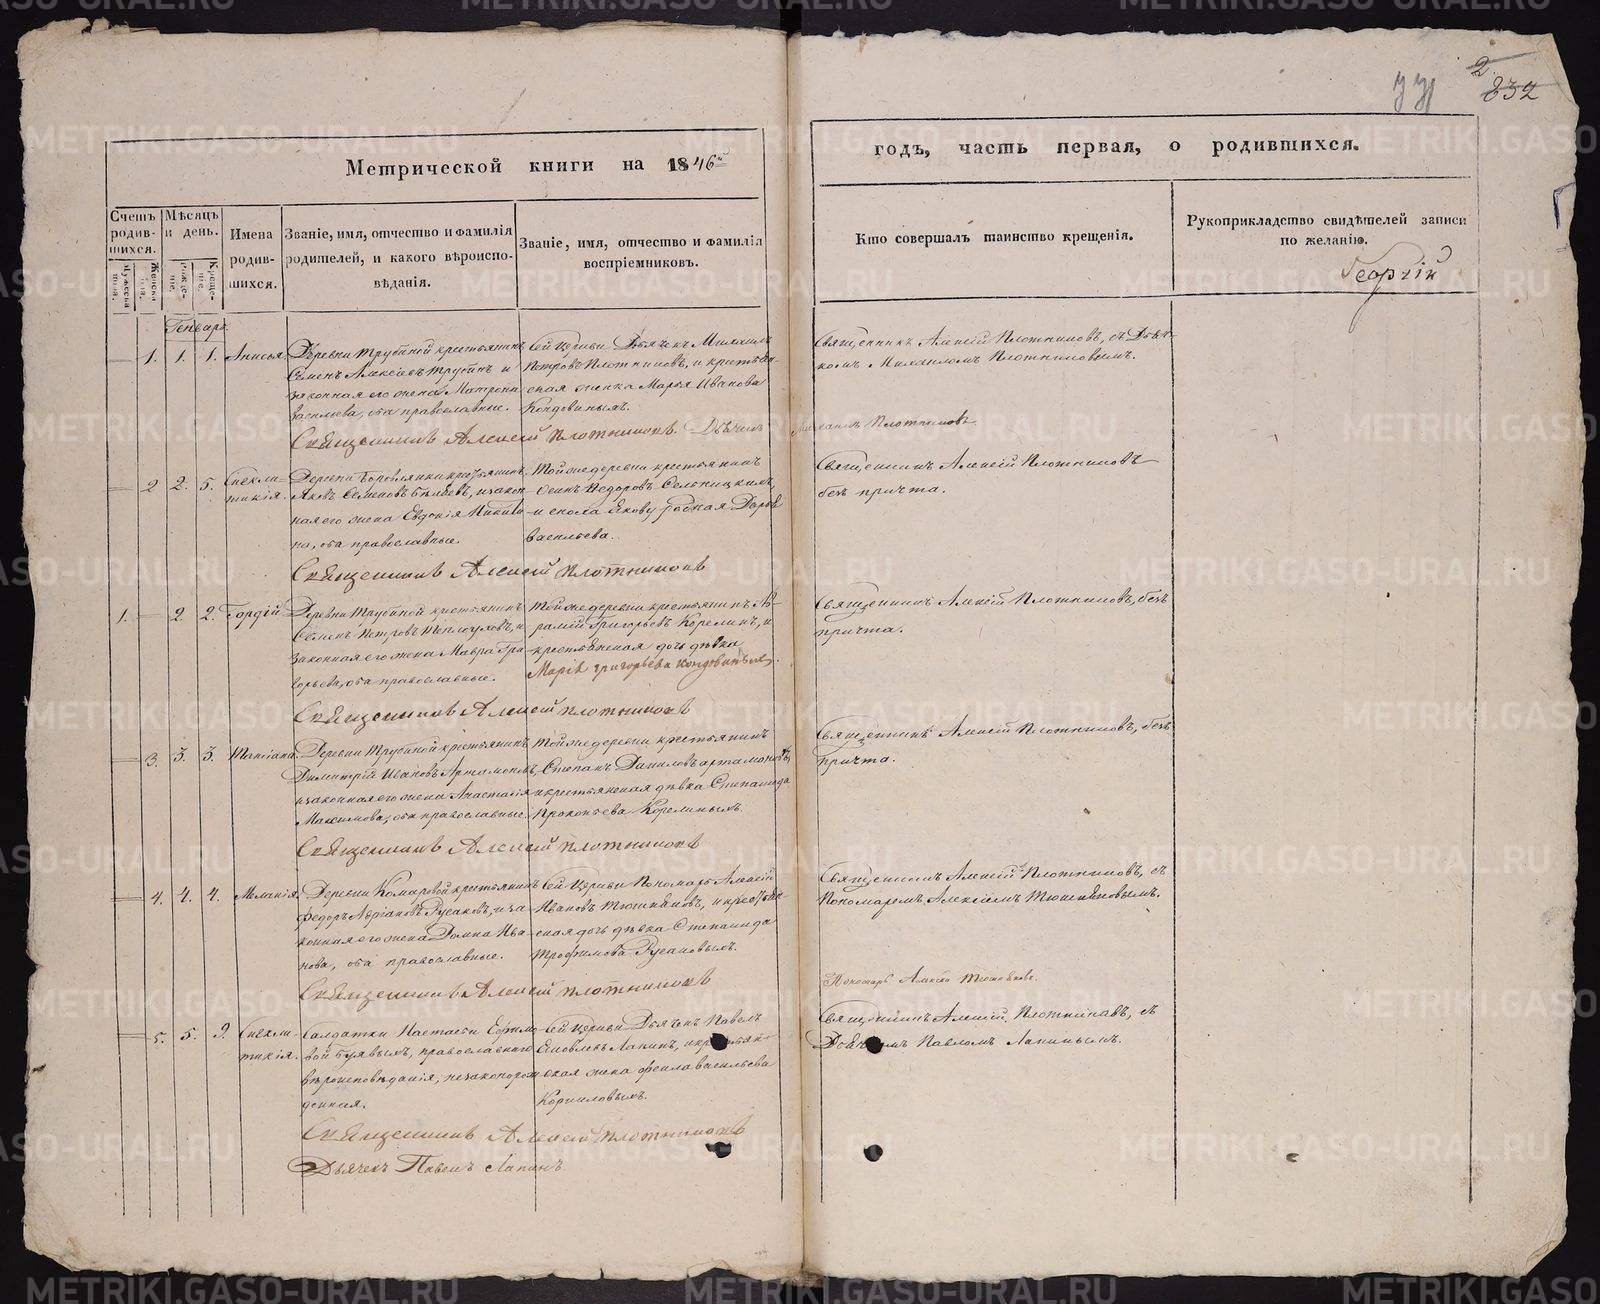 2
832
Метрической книги на 1846й
годъ, часть первая, о родившихся.
Счетъ родив-шихся.
Мѣсяцъ и день.
Имена родив-шихся.
Званіе, имя, отчество и фамилія родителей, и какого вѣроиспо-вѣданія.
Званіе, имя, отчество и фамилія воспріемниковъ.
Кто совершалъ таинство крещенія.
Рукоприкладство свидѣтелей записи по желанію.
Мужеска пола.
Женска пола.
Рожде-ніе.
Креще-ніе.
Георгій
Генваря
1. 1. 1. Анисья.
Деревни Трубиной крестьянинъ
Семенъ Алексѣевъ Трубинъ и
законная его жена Матрона
Васильева, оба православные.
Сей церкви Дьячекъ Михаилъ
Петровъ Плотниковъ, и крестьян-
ская жонка Марья Иванова
Кондовиныхъ.
Священникъ Алексій Плотниковъ, съ Дьяч-
комъ Михаиломъ Плотниковымъ.
Священникъ Алексій Плотниковъ. Дьячекъ Михаилъ Плотниковъ
2 2. 5. Синкли-
тикія.
Деревни крестьянинъ
Яковъ Семеновъ и закон-
ная его жена Евдокія Никити-
на, оба православные.
Тойже деревни крестьянинъ
Федоровъ
Якову родная Дарья
Васильева.
Священникъ Алексій Плотниковъ
безъ причта.
Священникъ Алексій Плотниковъ
1. 2. 2. Гордій
Деревни Трубиной крестьянинъ
Семенъ Петровъ Теплоуховъ, и
законная его жена Мавра Гри-
горьева, оба православные.
Тойже деревни крестьянинъ Ав-
рамій Григорьевъ Корелинъ, и
крестьянская дочь дѣвка
Марія Григорьева Кондовиныхъ.
Священникъ Алексій Плотниковъ, безъ
причта.
Священникъ Алексій Плотниковъ
3. 3. 3. Татіана.
Деревни Трубиной крестьянинъ
Димитрій Ивановъ Артамоновъ,
и законная его жена Анастасія
Максимова, оба православные.
Тойже деревни крестьянинъ
Степанъ Даниловъ Артамоновъ,
и крестьянская дѣвка Степанида
Прокопьева Корелиныхъ.
Священникъ Алексій Плотниковъ, безъ
причта.
Священникъ Алексій Плотниковъ
4. 4. 4. Меланія.
Деревни Комаровой крестьянинъ
Федоръ Русаковъ, и за-
конная его жена Домна Ива-
нова, оба православные.
Сей церкви Пономарь Алексій
Ивановъ Тюшняковъ, и крестьян-
ская дочь дѣвка Степанида
Трофимова Русаковыхъ.
Священникъ Алексій Плотниковъ, съ
Пономаремъ Алексіемъ Тюшняковымъ.
Священникъ Алексій Плотниковъ
Пономарь Алексѣй Тюшняковъ.
5. 5. 9. Синкли-
тикія.
Салдатки Настасьи Ефимо-
вой православнаго
вѣроисповѣданія, незаконорож-
денная.
Сей церкви Дьячекъ Павелъ
Яковлевъ Лапинъ, и крестьян-
ская жена Фекла Васильева
Корниловыхъ.
Священникъ Алексій Плотниковъ, съ
Дьячкомъ Павломъ Лапинымъ.
Священникъ Алексій Плотниковъ
Дьячекъ Павелъ Лапинъ.